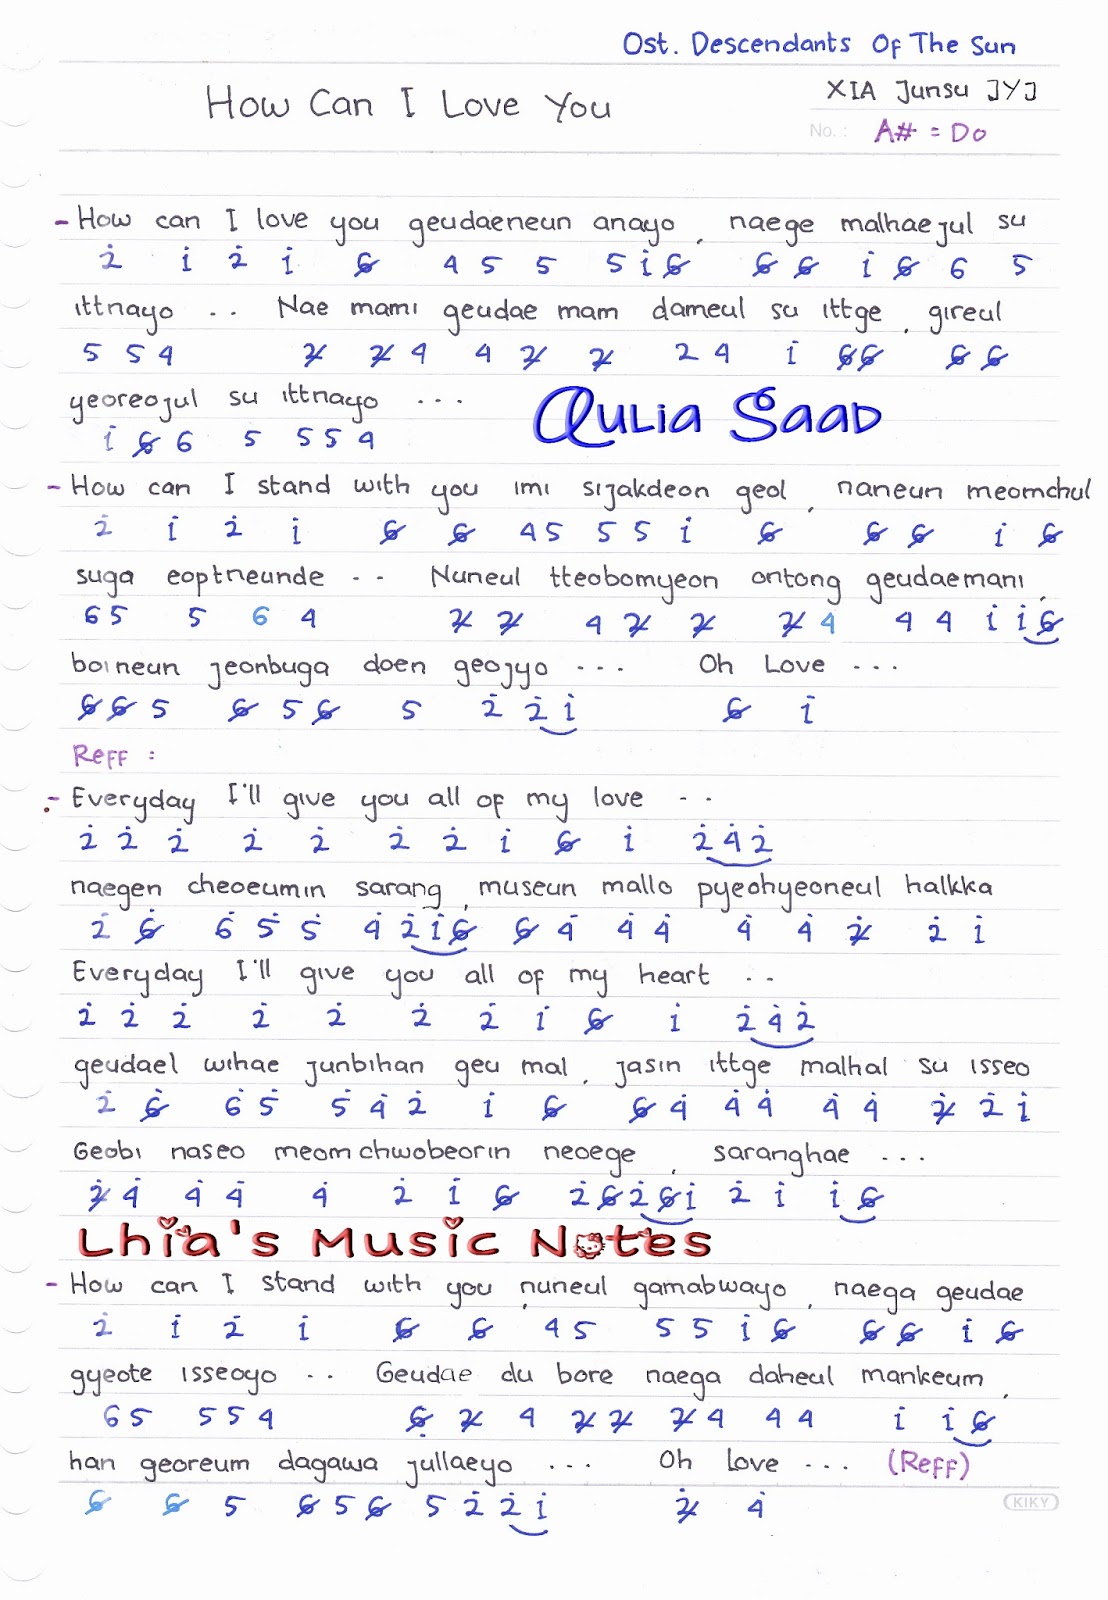 Ost. Descendants Of The Sun
How Can I Love You
XIA Junsu JYJ
No. : A# = Do
- How can I love you geudaeneun anayo, naege malhaejul su
2 1 2 1 6 4 5 5 5 1 6 6 6 1 6 6 5
ittnayo .. Nae mami geudae mam dameul su ittge, gireul
5 5 4 2 2 4 4 2 2 2 4 1 6 6 6 6
yeoreojul su ittnayo ...
Qulia Saad
1 6 6 5 5 5 4
- How can I stand with you imi sijakdeon geol, naneun meomchul
2 1 2 1 6 6 4 5 5 5 1 6 6 6 1 6
suga eoptneunde .. Nuneul tteobomyeon ontong geudaemani,
6 5 5 6 4 2 2 4 2 2 2 4 4 4 1 1 6
boineun jeonbuga doen geojyo ... Oh Love ...
6 6 5 6 5 6 5 2 2 1 6 1
Reff :
- Everyday I'll give you all of my love ..
2 2 2 2 2 2 2 1 6 1 2 4 2
naegen cheoeumin sarang, museun mallo pyeohyeoneul halkka
2 6 6 5 5 4 2 1 6 6 4 4 4 4 4 2 2 1
Everyday I'll give you all of my heart ..
2 2 2 2 2 2 2 1 6 1 2 4 2
geudael wihae junbihan geu mal, jasin ittge malhal su isseo
2 6 6 5 5 4 2 1 6 6 4 4 4 4 4 2 2 1
Geobi naseo meomchwobeorin neoege, saranghae ...
2 4 4 4 4 2 1 6 2 6 2 6 1 2 1 1 6
Lhia's Music Notes
- How can I stand with you, nuneul gamabwayo, naega geudae
2 1 2 1 6 6 4 5 5 5 1 6 6 6 1 6
gyeote isseoyo .. Geudae du bore naega daheul mankeum,
6 5 5 5 4 6 2 4 2 2 2 4 4 4 1 1 6
han georeum dagawa jullaeyo ... Oh Love ... (Reff)
6 6 5 6 5 6 5 2 2 1 2 4
KIKY